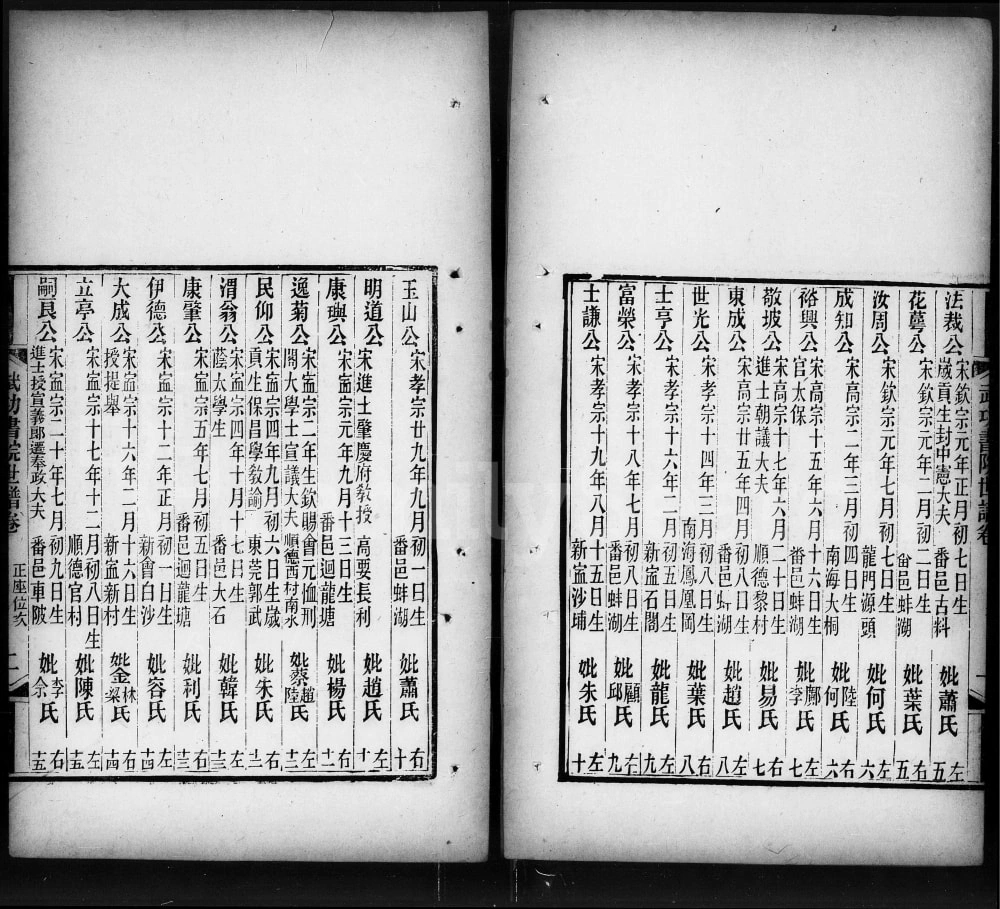 法裁公 宋欽宗元年正月初七日生 歲貢生封中憲大夫 番邑古料 妣蕭氏 左五
花蕚公 宋欽宗元年二月初二日生 番邑蚌湖 妣葉氏 右五
汝周公 宋欽宗元年七月初七日生 龍門源頭 妣何氏 左六
成知公 宋高宗二年三月初四日生 南海大桐 妣陸何氏 右六
裕興公 宋高宗十五年六月十六日生 官太保 番邑蚌湖 妣鄺李氏 左七
敬坡公 宋高宗十七年六月二十日生 進士朝議大夫 順德黎村 妣易氏 右七
東成公 宋高宗三十五年四月初五日生 番邑蚌湖 妣趙氏 左八
世光公 宋孝宗十四年三月初八日生 南海鳳凰岡 妣葉氏 右八
士亨公 宋孝宗十六年二月初五日生 新寗石閣 妣龍氏 左九
富榮公 宋孝宗十八年七月初八日生 番邑蚌湖 妣顧邱氏 右九
士謙公 宋孝宗十九年八月十五日生 新寗沙埔 妣朱氏 左十
武功書院世譜卷
玉山公 宋孝宗廿九年九月初一日生 番邑蚌湖 妣蕭氏 右十
明道公 宋進士肇慶府教授 高要長利 妣趙氏 左十一
康輿公 宋寗宗元年九月十三日生 番邑迴龍塘 妣楊氏 右十一
逸菊公 宋寗宗二年生欽賜會元恤刑 閣大學士宣議大夫 順德西村南永 妣趙蔡陸氏 左十二
民仰公 宋寗宗四年九月初六日生歲 貢生保昌學教諭 東莞郭武 妣朱氏 右十二
渭翁公 宋寗宗四年十月十七日生 蔭太學生 番邑大石 妣韓氏 左十三
康肇公 宋寗宗五年七月初五日生 番邑迴龍塘 妣利氏 右十三
伊德公 宋寗宗十二年正月初一日生 新會白沙 妣容氏 左十四
大成公 宋寗宗十六年二月十六日生 授提舉 新寗新村 妣林金梁氏 右十四
立亭公 宋寗宗十七年十二月初八日生 順德官村 妣陳氏 左十五
嗣艮公 宋寗宗二十年七月初九日生 進士授宣義郎遷奉政大夫 番邑車陂 妣李余氏 右十五
武功書院世譜卷 正座位次 二